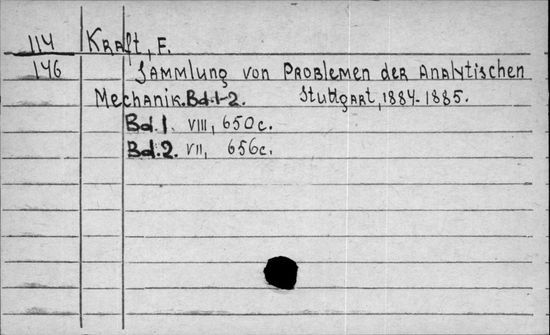 114 Kraft, F.
146 Sammlung von Problemen der Analytischen
Mechanik. Bd. 1-2. Stuttgart, 1884-1885.
Bd. 1. VIII, 650 c.
Bd. 2. VII, 656 c.